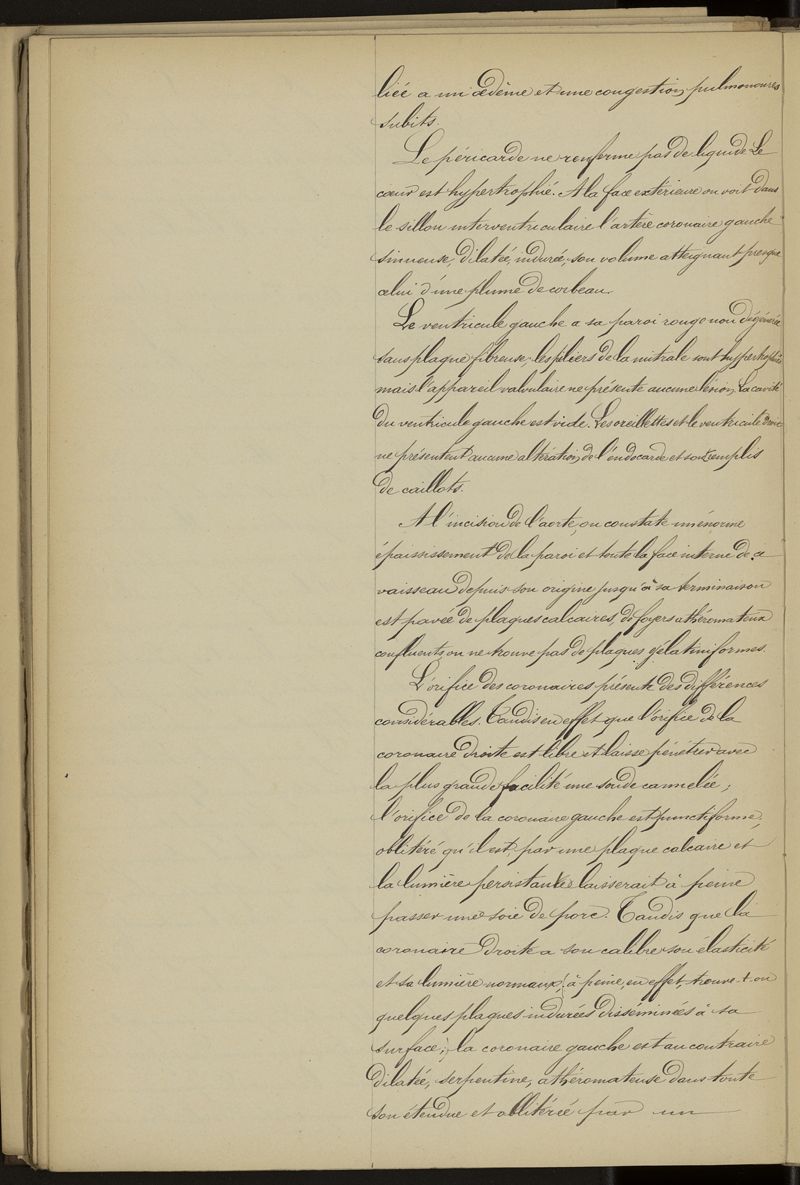 liée a un œdème et une congestion pulmonaires
subits.
Le péricarde ne renferme pas de liquide Le
cœur est hypertrophié. A la face extérieure on voit dans
le sillon interventriculaire l'artère coronaire gauche
sinueuse, dilatée, indurée, son volume atteignant presque
celui d'une plume de corbeau.
Le ventricule gauche a sa paroi rouge non dégénérée
sans plaque fibreuse, les piliers de la mitrale sont hypertrophiés
mais l'appareil valvulaire ne présente aucune lésion, La cavité
du ventricule gauche est vide. Les oreillettes et le ventricule droit
ne présentent aucune altération de l'endocarde et sont remplis
de caillots.
A l'incision de l'aorte, on constate un énorme
épaississement de la paroi et toute la face interne de ce
vaisseau depuis son origine jusqu'à sa terminaison
est pavée de plaques calcaires, de foyers athéromateux
confluents, on ne trouve pas de plaques gélatiniformes.
L'orifice des coronaires présente des différences
considérables. Tandis en effet que l'orifice de la
coronaire droite est libre et laisse pénétrer avec
la plus grande facilité une sonde cannelée;
l'orifice de la coronaire gauche est punctiforme,
oblitéré qu'il est, par une plaque calcaire et
la lumière persistante laisserait à peine
passer une soie de porc. Tandis que la
coronaire droite a son calibre son élasticité
et sa lumière normaux, à peine, en effet, trouve-t-on
quelques plaques indurées disséminées à sa
surface; la coronaire gauche est au contraire
dilatée, serpentine, athéromateuse dans toute
son étendue et oblitérée par un